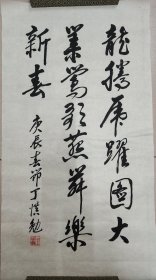 龍騰虎躍圖大
業鶯歌燕舞樂
新春
庚辰春節丁洪勉